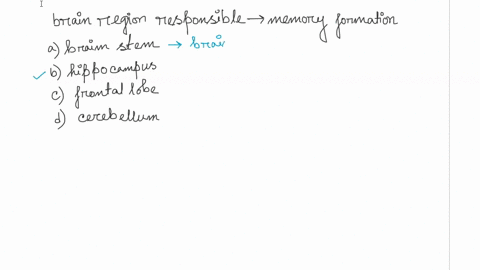 brain region responsible → memory formation
a) brain stem → brai
✓ b) hippocampus
c) frontal lobe
d) cerebellum